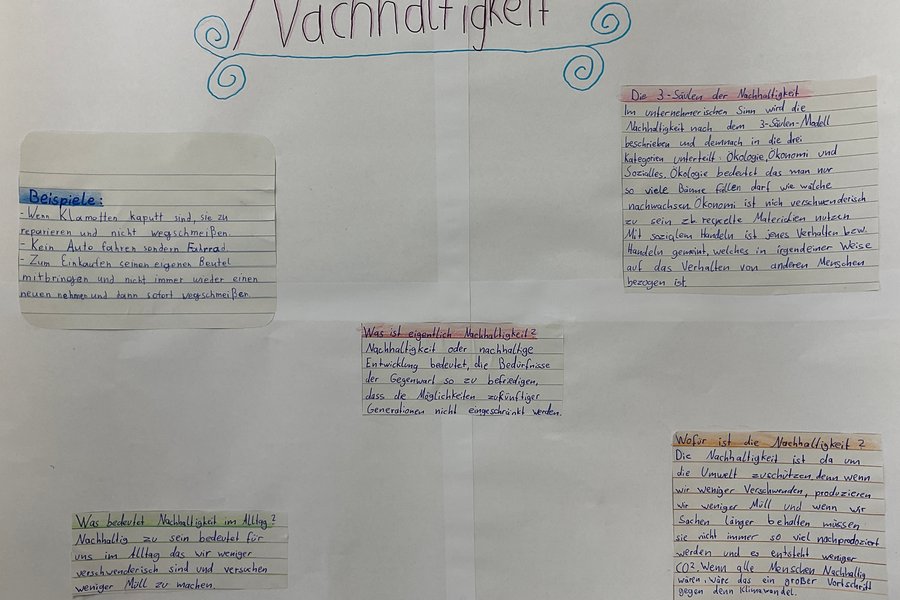 Nachhaltigkeit
Die 3-Säulen der Nachhaltigkeit
Im unternehmerischen Sinn wird die
Nachhaltigkeit nach dem 3-Säulen-Modell
beschrieben und demnach in die drei
Kategorien unterteilt: Ökologie, Ökonomi und
Sozialles. Ökologie bedeutet das man nur
so viele Bäume fällen darf wie welche
nachwachsen. Ökonomi ist nich verschwenderisch
zu sein zb recycelte Materialien nutzen
Mit sozialem Handeln ist jenes Verhalten bzw.
Handeln gemeint, welches in irgendeiner Weise
auf das Verhalten von anderen Menschen
bezogen ist.
Beispiele:
- Wenn Klamotten kaputt sind, sie zu
reparieren und nicht wegschmeißen.
- Kein Auto fahren sondern Fahrrad
- Zum Einkaufen seinen eigenen Beutel
mitbringen und nicht immer wieder einen
neuen nehmen und dann sofort wegschmeißen.
Was ist eigentlich Nachhaltigkeit?
Nachhaltigkeit oder nachhaltige
Entwicklung bedeutet, die Bedürfnisse
der Gegenwart so zu befriedigen,
dass die Möglichkeiten zukünftiger
Generationen nicht eingeschränkt werden.
Wofür ist die Nachhaltigkeit?
Die Nachhaltigkeit ist da um
die Umwelt zuschützen, denn wenn
wir weniger Verschwenden, produzieren
wir weniger Müll und wenn wir
Sachen länger behalten müssen
sie nicht immer so viel nachproduziert
werden und es entsteht weniger
CO². Wenn alle Menschen Nachhaltig
wären, wäre das ein großer Vortschritt
gegen denn Klimawandel.
Was bedeutet Nachhaltigkeit im Alltag?
Nachhaltig zu sein bedeutet für
uns im Alltag das wir weniger
verschwenderisch sind und versuchen
weniger Müll zu machen.